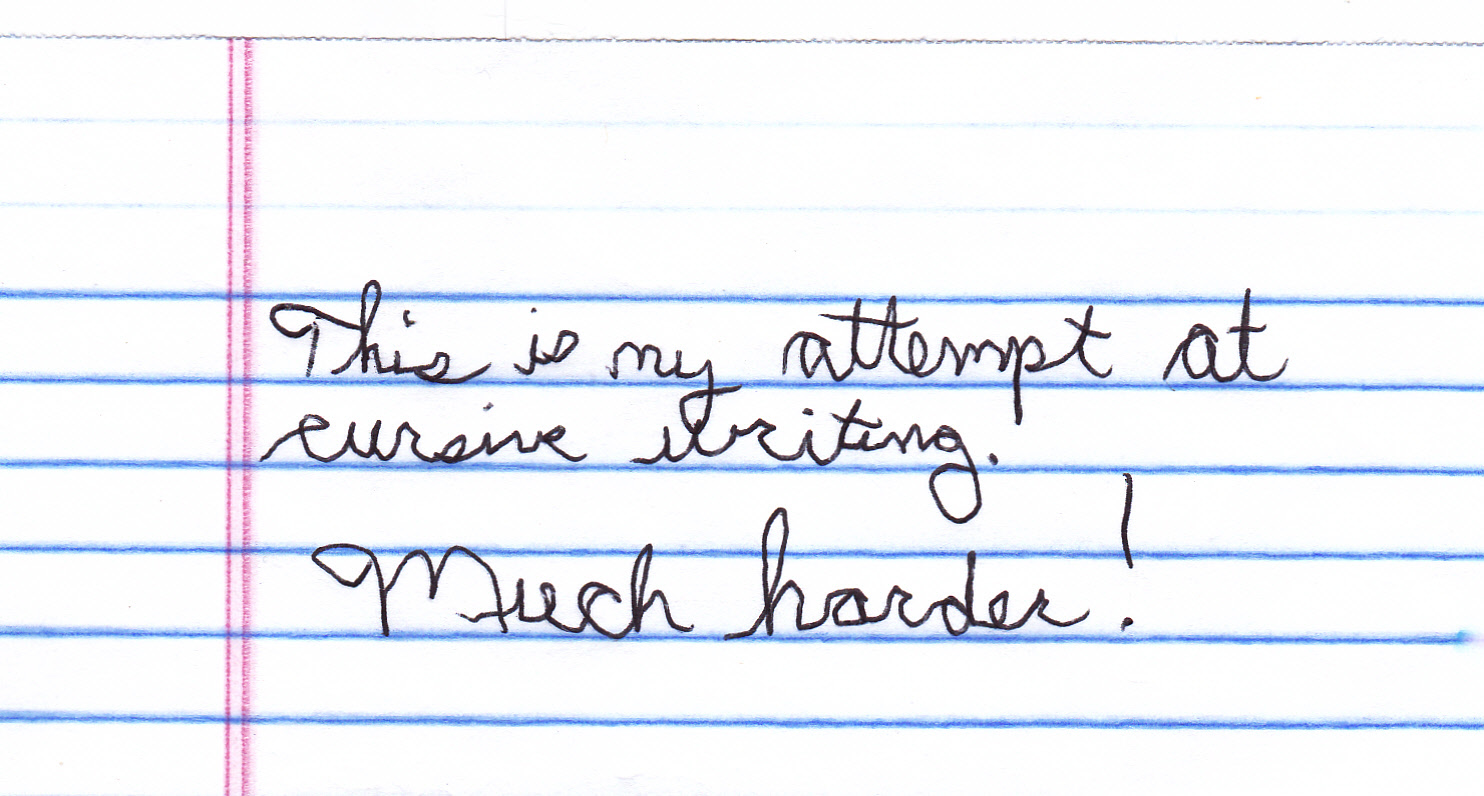 This is my attempt at
cursive writing.
Much harder!